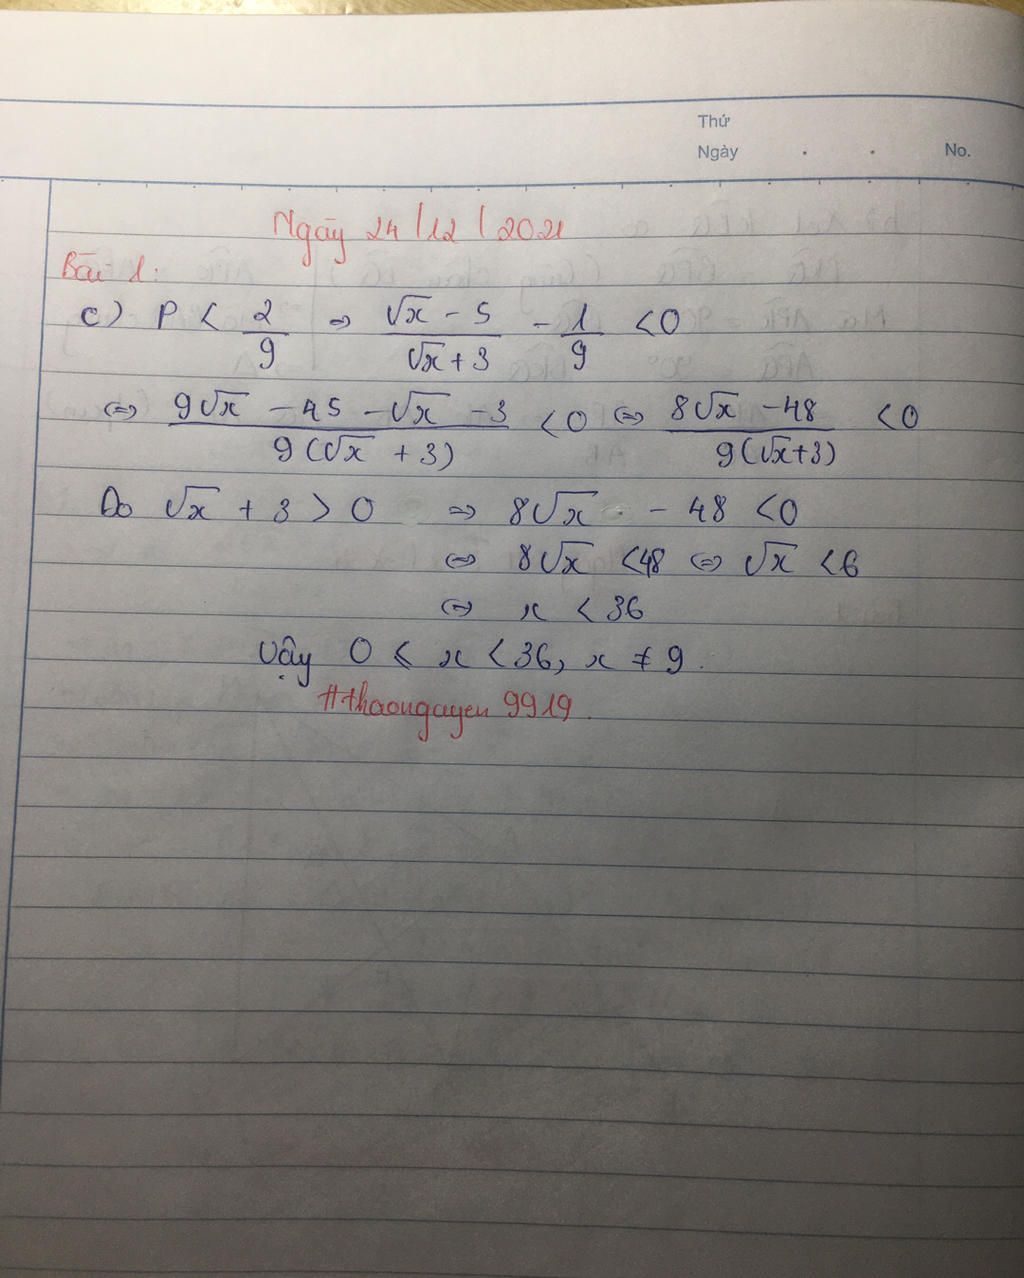 Thứ
Ngày . . No.
Ngày 24/12/2021
Bài 1:
c) P < 2/9 => (√x - 5)/(√x + 3) - 1/9 < 0
<=> (9√x - 45 - √x - 3)/(9(√x + 3)) < 0 <=> (8√x - 48)/(9(√x+3)) < 0
Do √x + 3 > 0 => 8√x - 48 < 0
<=> 8√x < 48 <=> √x < 6
<=> x < 36
Vậy 0 ≤ x < 36, x ≠ 9.
#thaonguyen 9919.